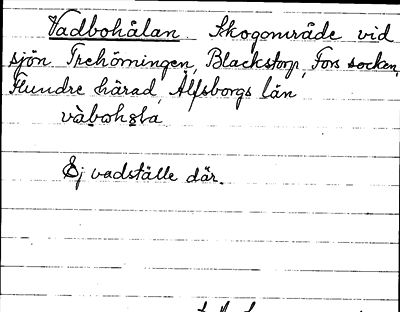 Vadbohålan Skogområde vid
sjön Trehörningen, Blackstorp, Fors socken,
Flundre härad, Älfsborgs län
vàbohɷla
Ej vadställe där.